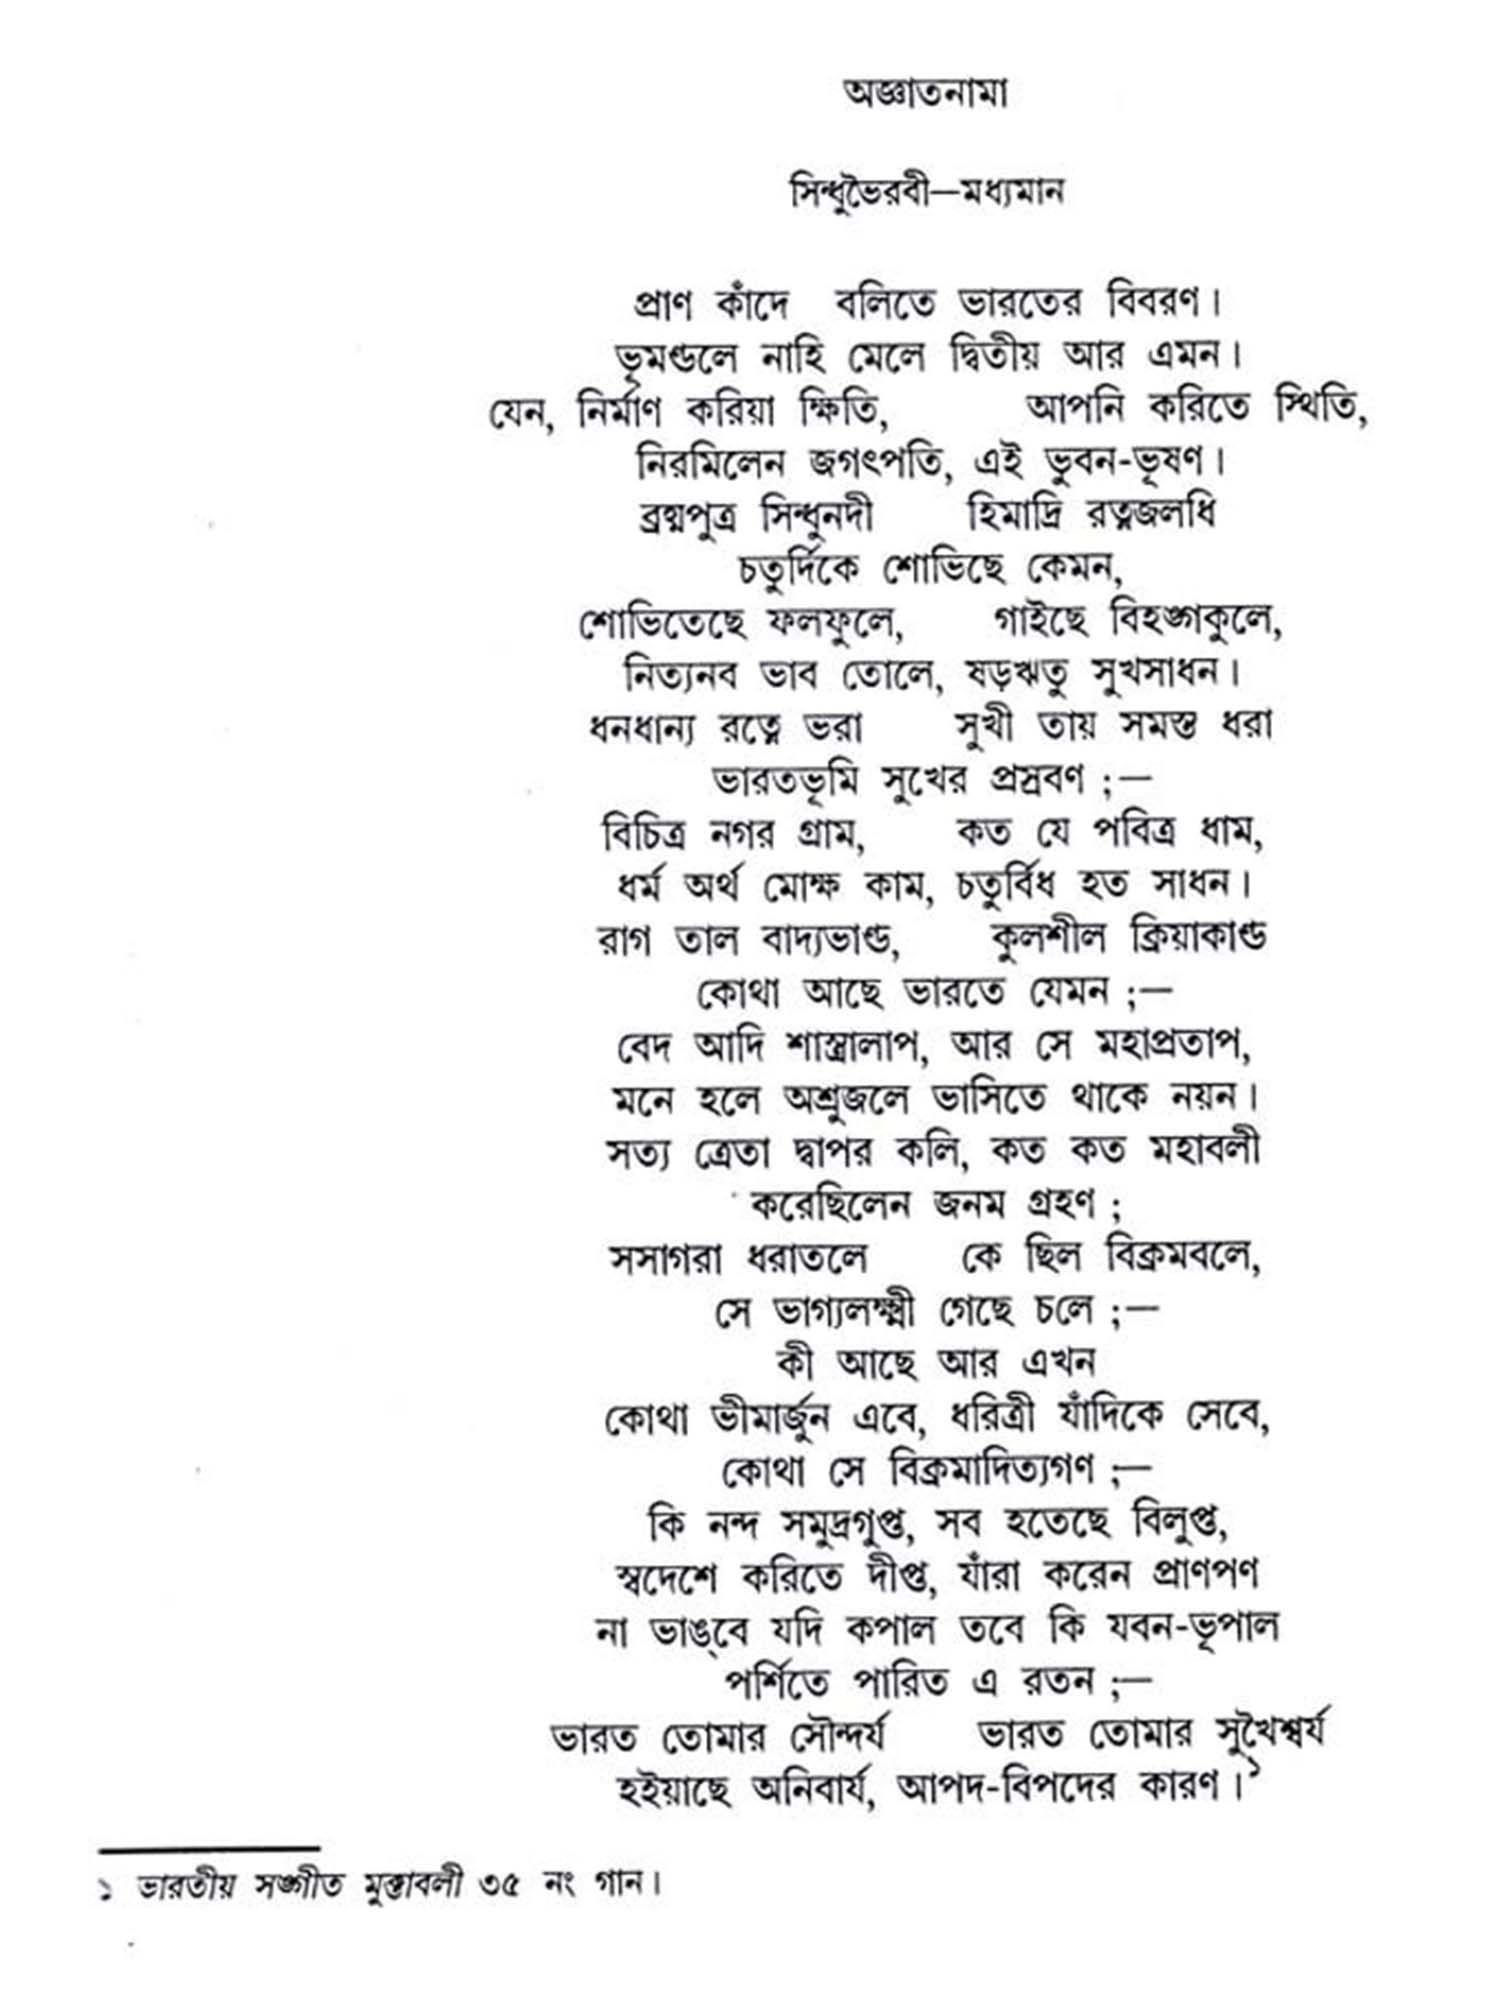 অজ্ঞাতনামা
সিন্ধুভৈরবী—মধ্যমান
প্রাণ কাঁদে বলিতে ভারতের বিবরণ।
ভূমণ্ডলে নাহি মেলে দ্বিতীয় আর এমন।
যেন, নির্মাণ করিয়া ক্ষিতি, আপনি করিতে স্থিতি,
নিরমিলেন জগৎপতি, এই ভুবন-ভূষণ।
ব্রহ্মপুত্র সিন্ধুনদী হিমাদ্রি রত্নজলধি
চতুর্দিকে শোভিছে কেমন,
শোভিতেছে ফলফুলে, গাইছে বিহঙ্গকুলে,
নিত্যনব ভাব তোলে, ষড়ঋতু সুখসাধন।
ধনধান্য রত্নে ভরা সুখী তায় সমস্ত ধরা
ভারতভূমি সুখের প্রস্রবণ ;—
বিচিত্র নগর গ্রাম, কত যে পবিত্র ধাম,
ধর্ম অর্থ মোক্ষ কাম, চতুর্বিধ হত সাধন।
রাগ তাল বাদ্যভাণ্ড, কুলশীল ক্রিয়াকাণ্ড
কোথা আছে ভারতে যেমন ;—
বেদ আদি শাস্ত্রালাপ, আর সে মহাপ্রতাপ,
মনে হলে অশ্রুজলে ভাসিতে থাকে নয়ন।
সত্য ত্রেতা দ্বাপর কলি, কত কত মহাবলী
করেছিলেন জনম গ্রহণ ;
সসাগরা ধরাতলে কে ছিল বিক্রমবলে,
সে ভাগ্যলক্ষ্মী গেছে চলে ;—
কী আছে আর এখন
কোথা ভীমার্জুন এবে, ধরিত্রী যাঁদিকে সেবে,
কোথা সে বিক্রমাদিত্যগণ ;—
কি নন্দ সমুদ্রগুপ্ত, সব হতেছে বিলুপ্ত,
স্বদেশে করিতে দীপ্ত, যাঁরা করেন প্রাণপণ
না ভাঙ্‌বে যদি কপাল তবে কি যবন-ভূপাল
পর্শিতে পারিত এ রতন ;—
ভারত তোমার সৌন্দর্য ভারত তোমার সুখৈশ্বর্য
হইয়াছে অনিবার্য, আপদ-বিপদের কারণ।১
১ ভারতীয় সঙ্গীত মুক্তাবলী ৩৫ নং গান।